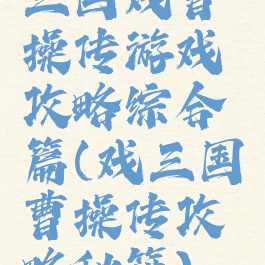 三国戏曹
操传游戏
攻略综合
篇(戏三国
曹操传攻
略秘籍)